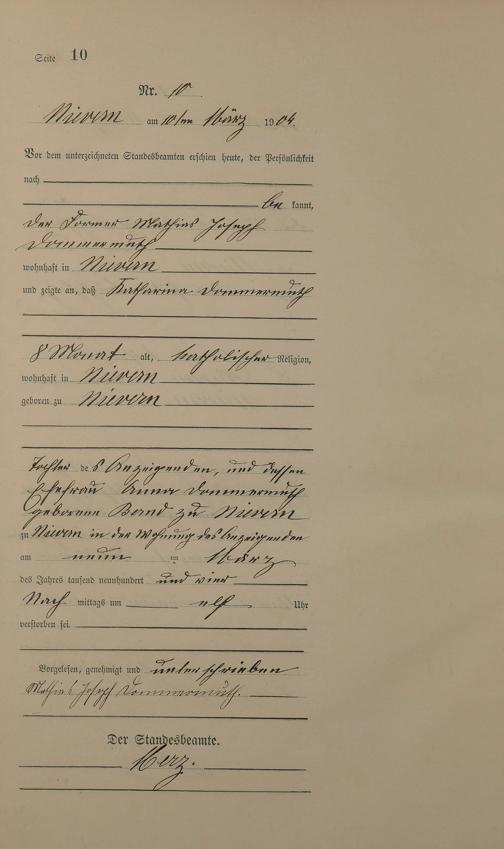 Seite 10
Nr. 10
Nievern am 10ten März 1904.
Vor dem unterzeichneten Standesbeamten erschien heute, der Persönlichkeit
nach
be kannt,
der Former Mathias Joseph
Dommermuth
wohnhaft in Nievern
und zeigte an, daß Katharina Dommermuth
8 Monat alt, katholischer Religion,
wohnhaft in Nievern
geboren zu Nievern
Tochter des Anzeigenden, und dessen
Ehefrau Anna Dommermuth
geborene Band zu Nievern
zu Nievern in der Wohnung des Anzeigenden
am neun im März
des Jahres tausend neunhundert und vier
Nach mittags um elf Uhr
verstorben sei.
Vorgelesen, genehmigt und unterschrieben
Mathias Joseph Dommermuth.
Der Standesbeamte.
Merz.